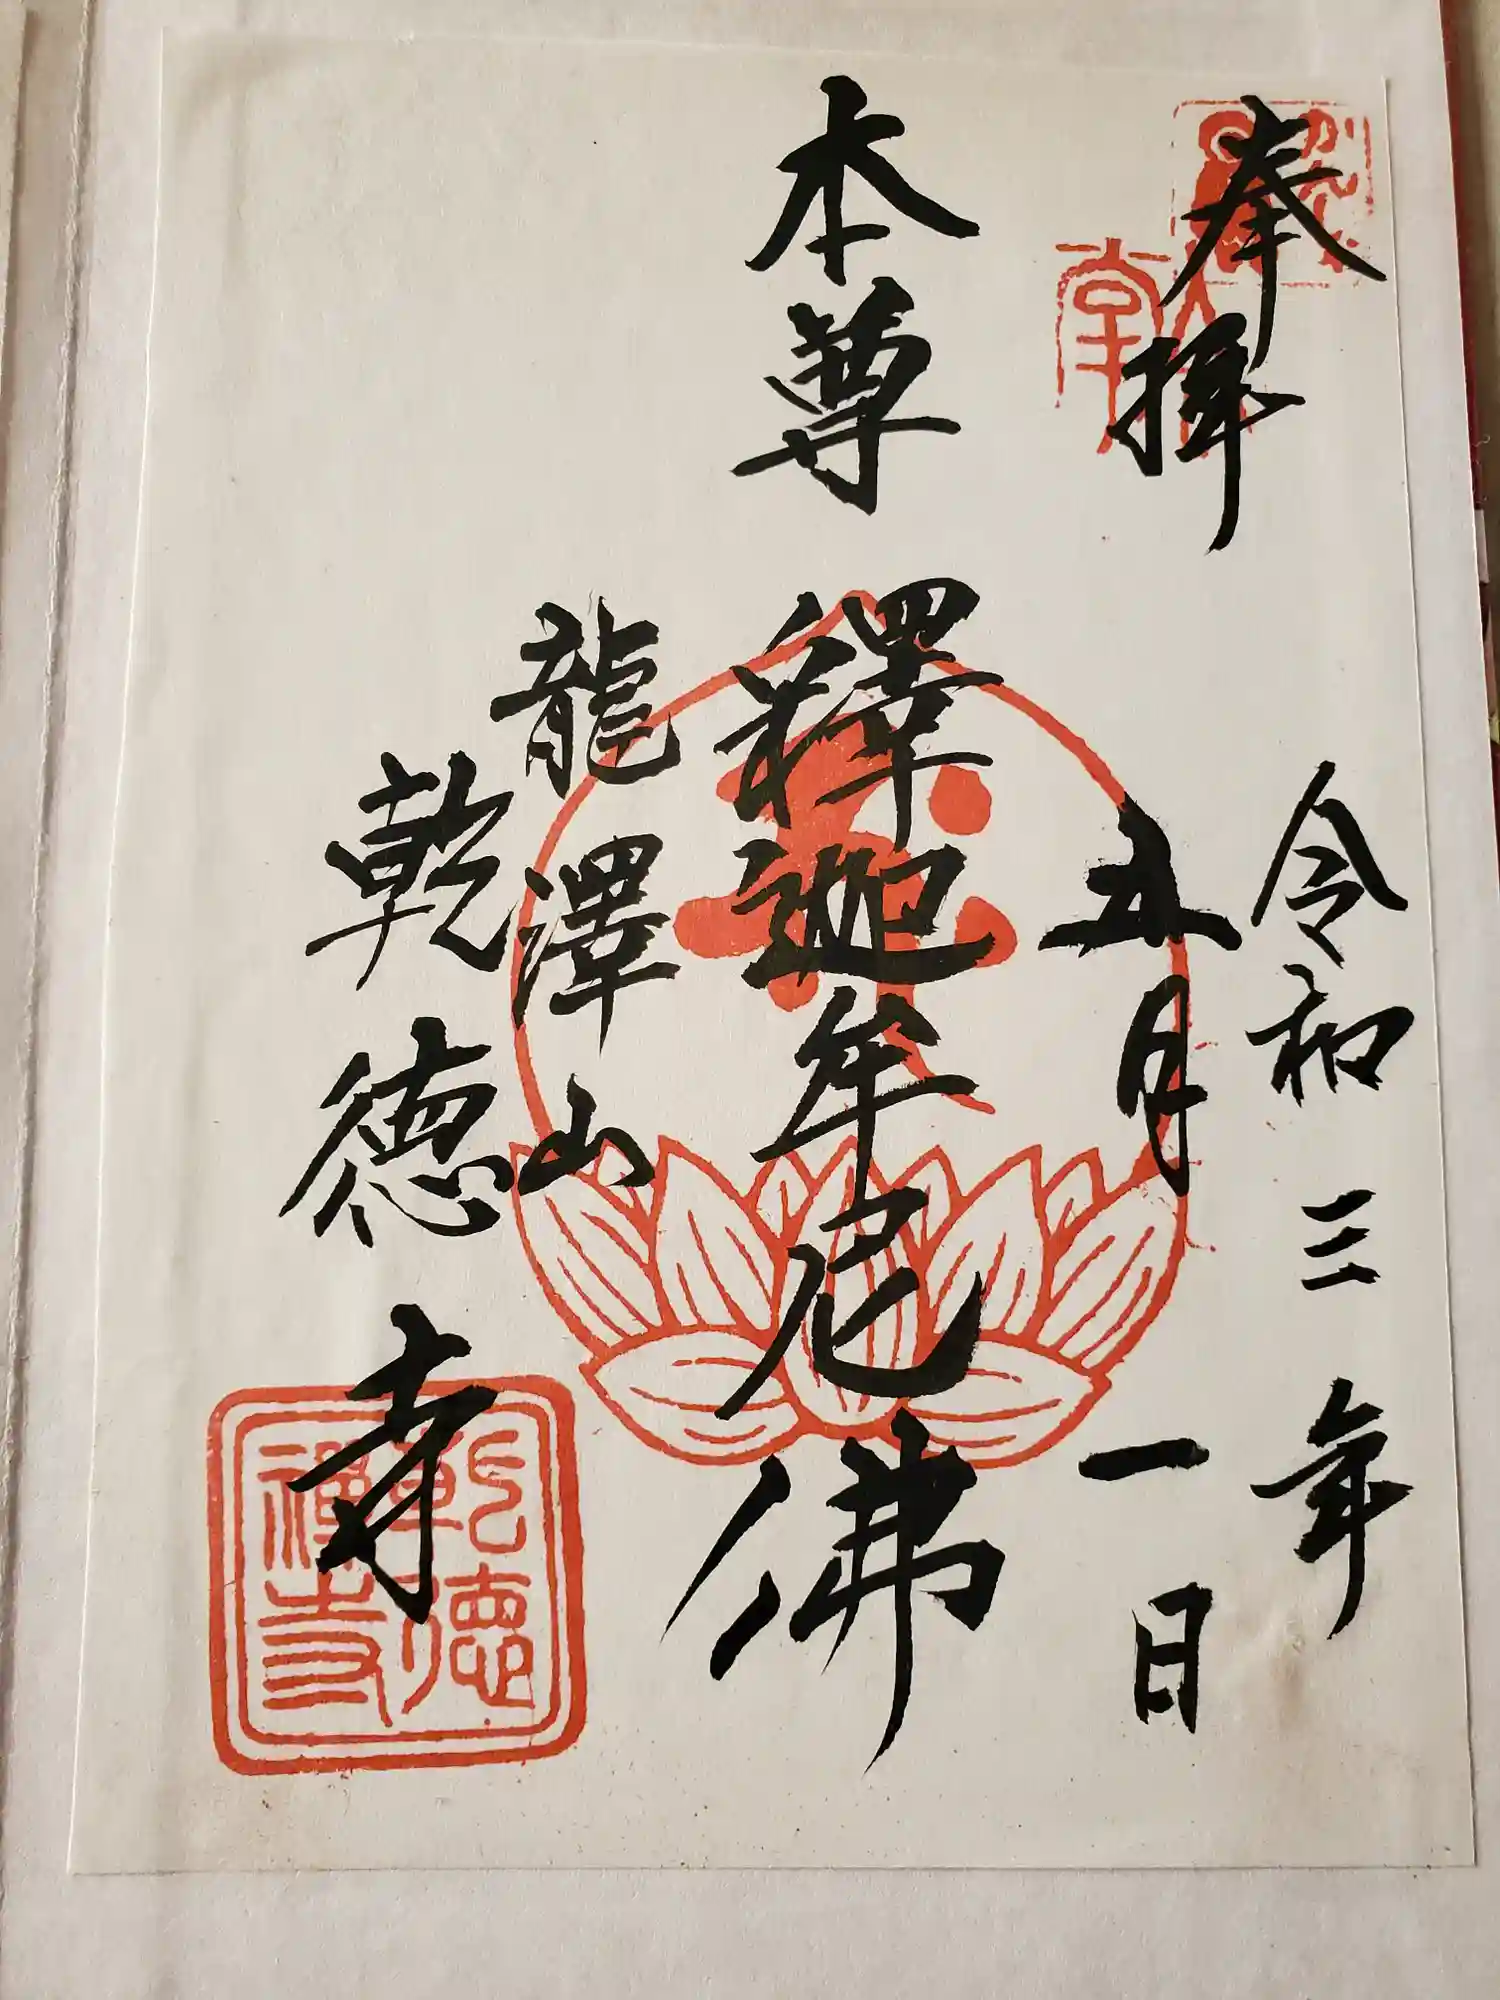 奉拝
令和三年
五月一日
本尊 釋迦牟尼佛
龍澤山
乾德寺
乾德
禅寺